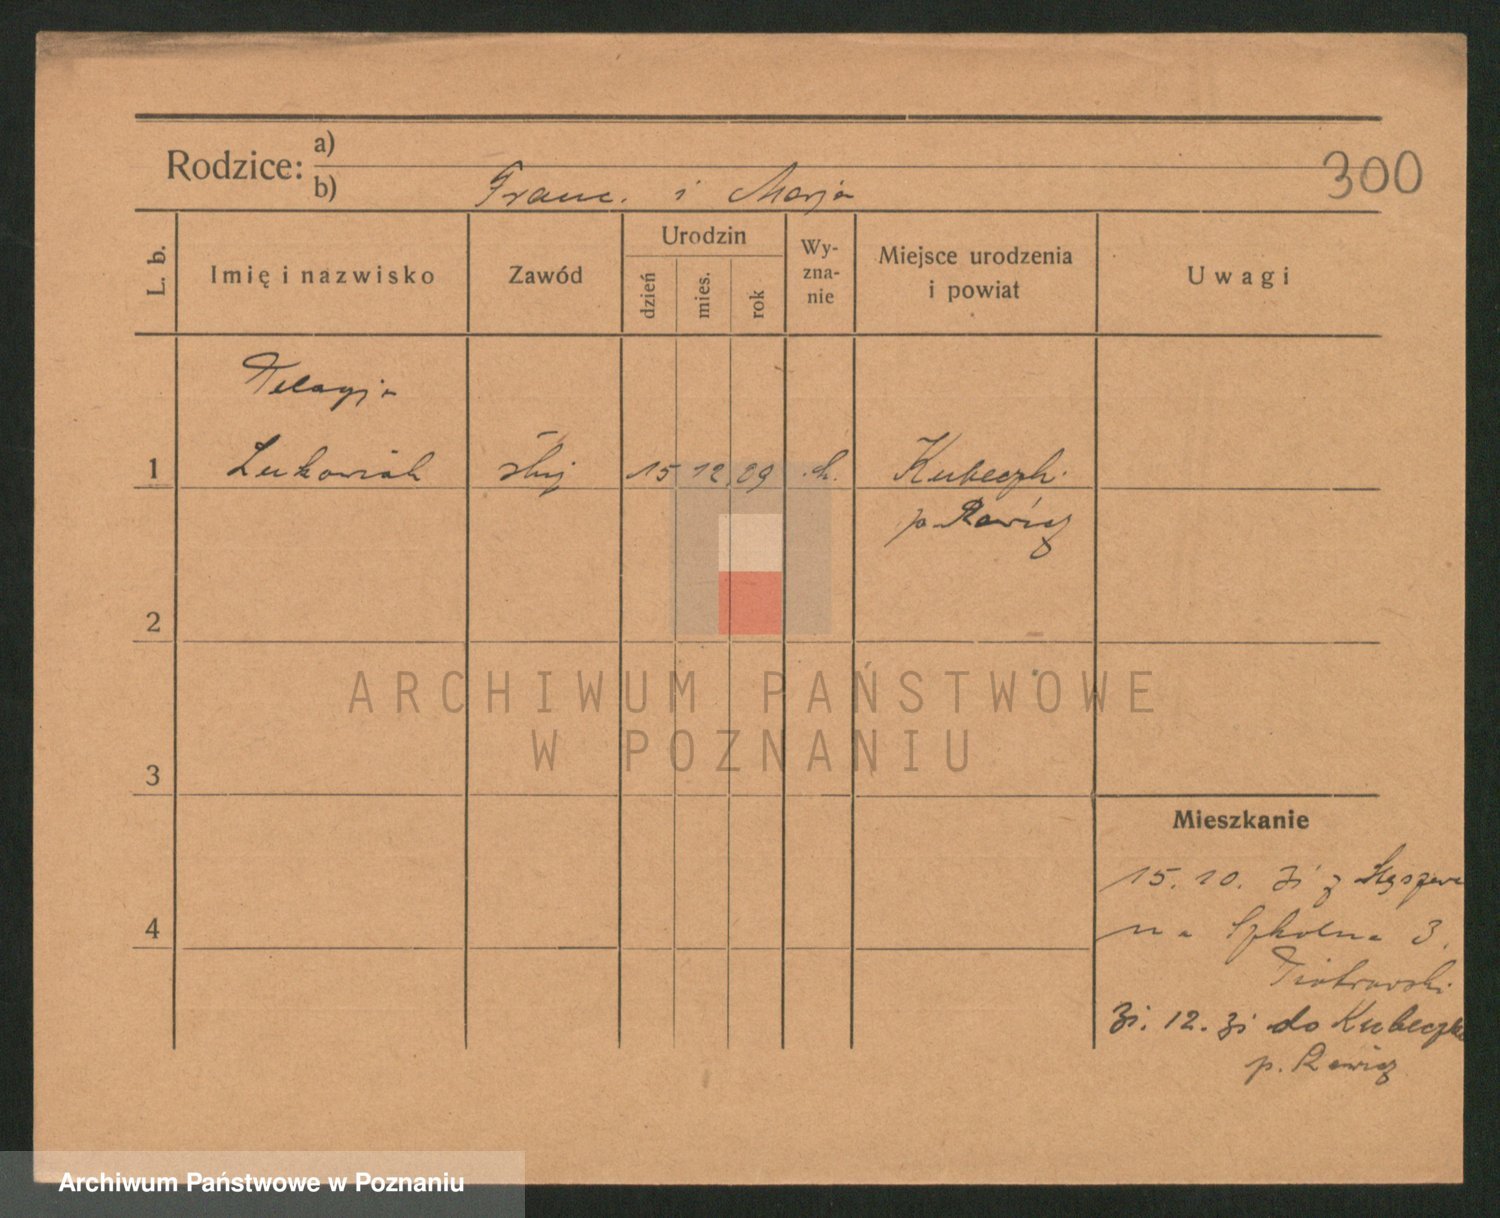 Rodzice:
a)
b) Franc. i Marja
300
L. b.
Imię i nazwisko
Zawód
Urodzin
dzień
mies.
rok
Wy-
zna-
nie
Miejsce urodzenia
i powiat
Uwagi
Pelagja
1 Lukowiak służ 15 12. 09 k. Kubeczk.
p. Rawicz
2
ARCHIWUM PAŃSTWOWE
W POZNANIU
3
Mieszkanie
15. 10. 31 z
4
na Szkolna 3.
Piotrowski
31. 12. 31 do Kubeczk
p. Rawicz
Archiwum Państwowe w Poznaniu